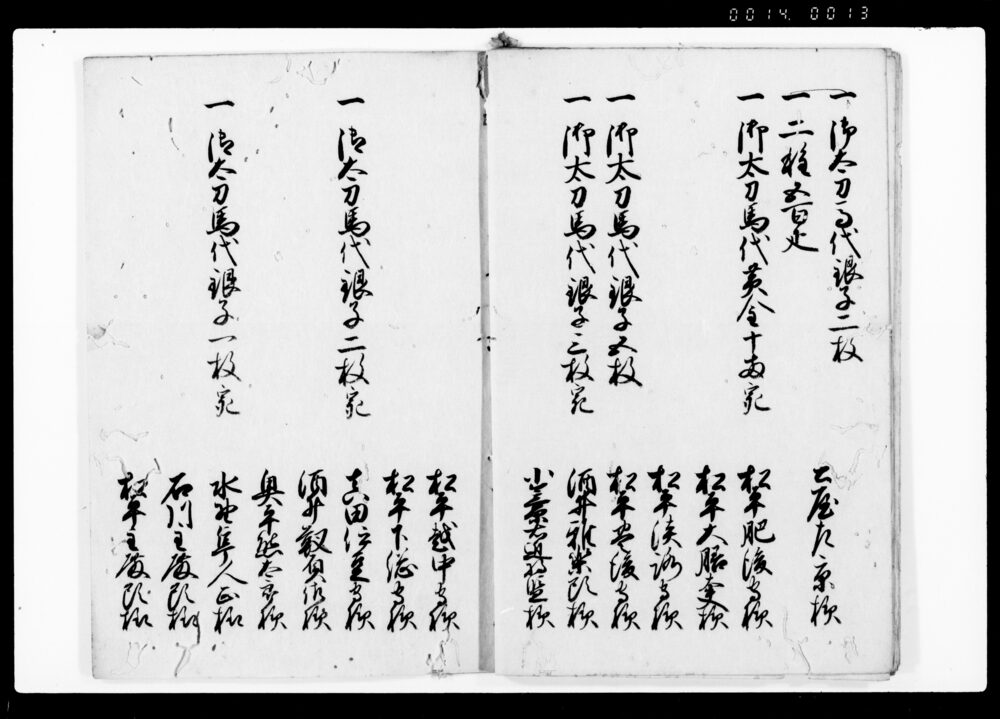 0014. 0013
一 御太刀馬代銀子二枚
土屋左京様
一 二種五百疋
一 御太刀馬代黄金十両宛
松平肥後守様
松平大膳大夫様
松平淡路守様
一 御太刀馬代銀子五枚
松平豊後守様
一 御太刀馬代銀子三枚宛
酒井雅楽頭様
小笠原右近将監様
松平越中守様
松平下総守様
一 御太刀馬代銀子二枚宛
真田伊豆守様
酒井
奥平熊太郎様
一 御太刀馬代銀子一枚宛
水野隼人正様
石川主殿頭様
松平主殿頭様